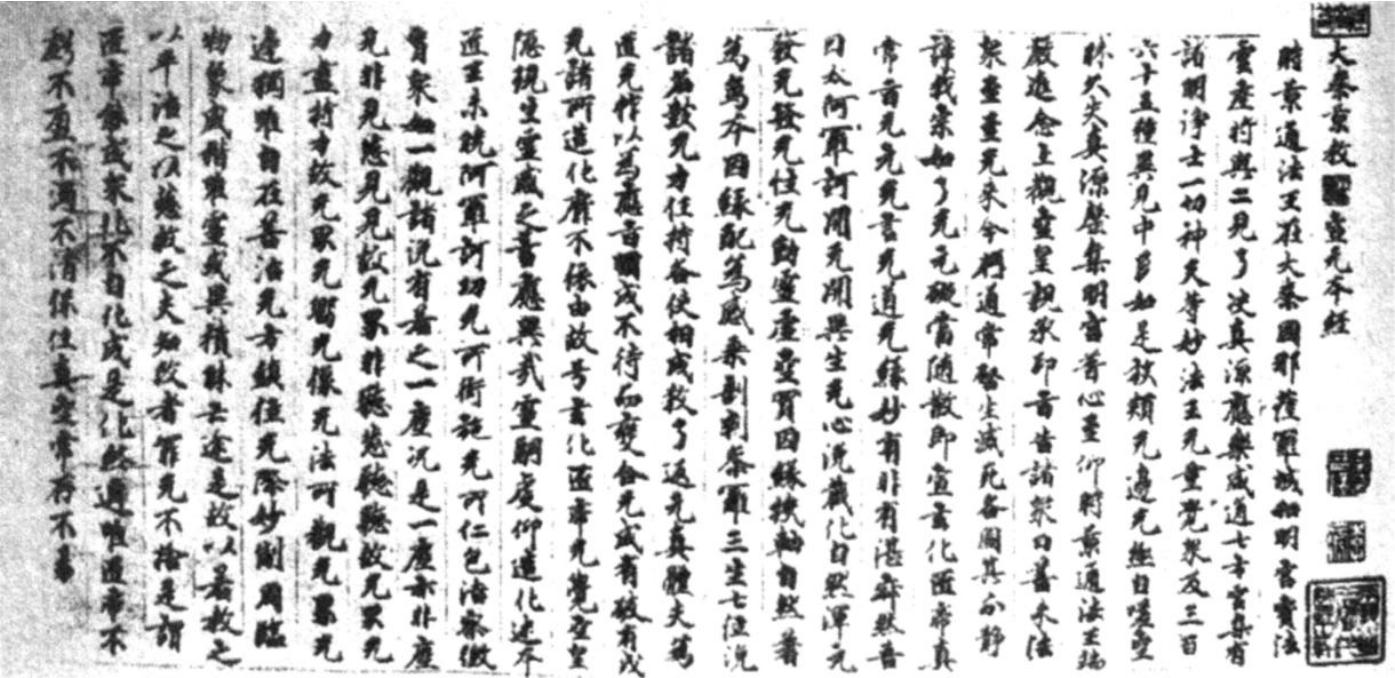 大秦景教宣元本經
時景通法王在大秦國那薩羅城和明宮寶法
雲座將與二見了決真源應樂咸通七方雲集有
諸明淨士一切神天等妙法王无量覺眾及三百
六十五種異見中民如是族類无邊无極自嗟空
昧久失真源罄集明宮普心至仰時景通法王端
嚴進念上觀空皇親承印旨告諸眾曰善來法
眾至至无來今柯通常啓生滅死各圖其分靜
諦我宗如了无元礙當隨散即宣玄化匠帝真
常旨无元无言无道无緣妙有非有湛寂然吾
曰太阿羅訶開无開異生无心浼藏化自然渾元
發无發无性无動靈虛空買因緣機軸自然著
為象本因緣配為感乘剖判參羅三生七位浼
諸名數无力任持各使相成教了返元真體夫為
匠无作以為應旨順成不待而變合无成有破有成
无諸所造化靡不依由故号玄化匠帝无覺空皇
隱現生靈感之善應異哉靈嗣虔仰造化迷本
匠王未曉阿羅訶功无所衒施无所仁包洽察微
育眾如一觀諸浼有若之一塵況是一塵亦非塵
見非見悉見見故无界非聽悉聽聽故无界无
力盡持力故无界无嚮无像无法所觀无界无
邊獨唯自在善治无方鎮位无際妙制周臨
物象咸楷唯靈或異積昧亡途是故以善教之
以平治之以慈救之夫知改者罪无不捨是謂
匠帝能成眾化不自化成是化終遷唯匠帝不
虧不盈不濁不清保住真空常存不易